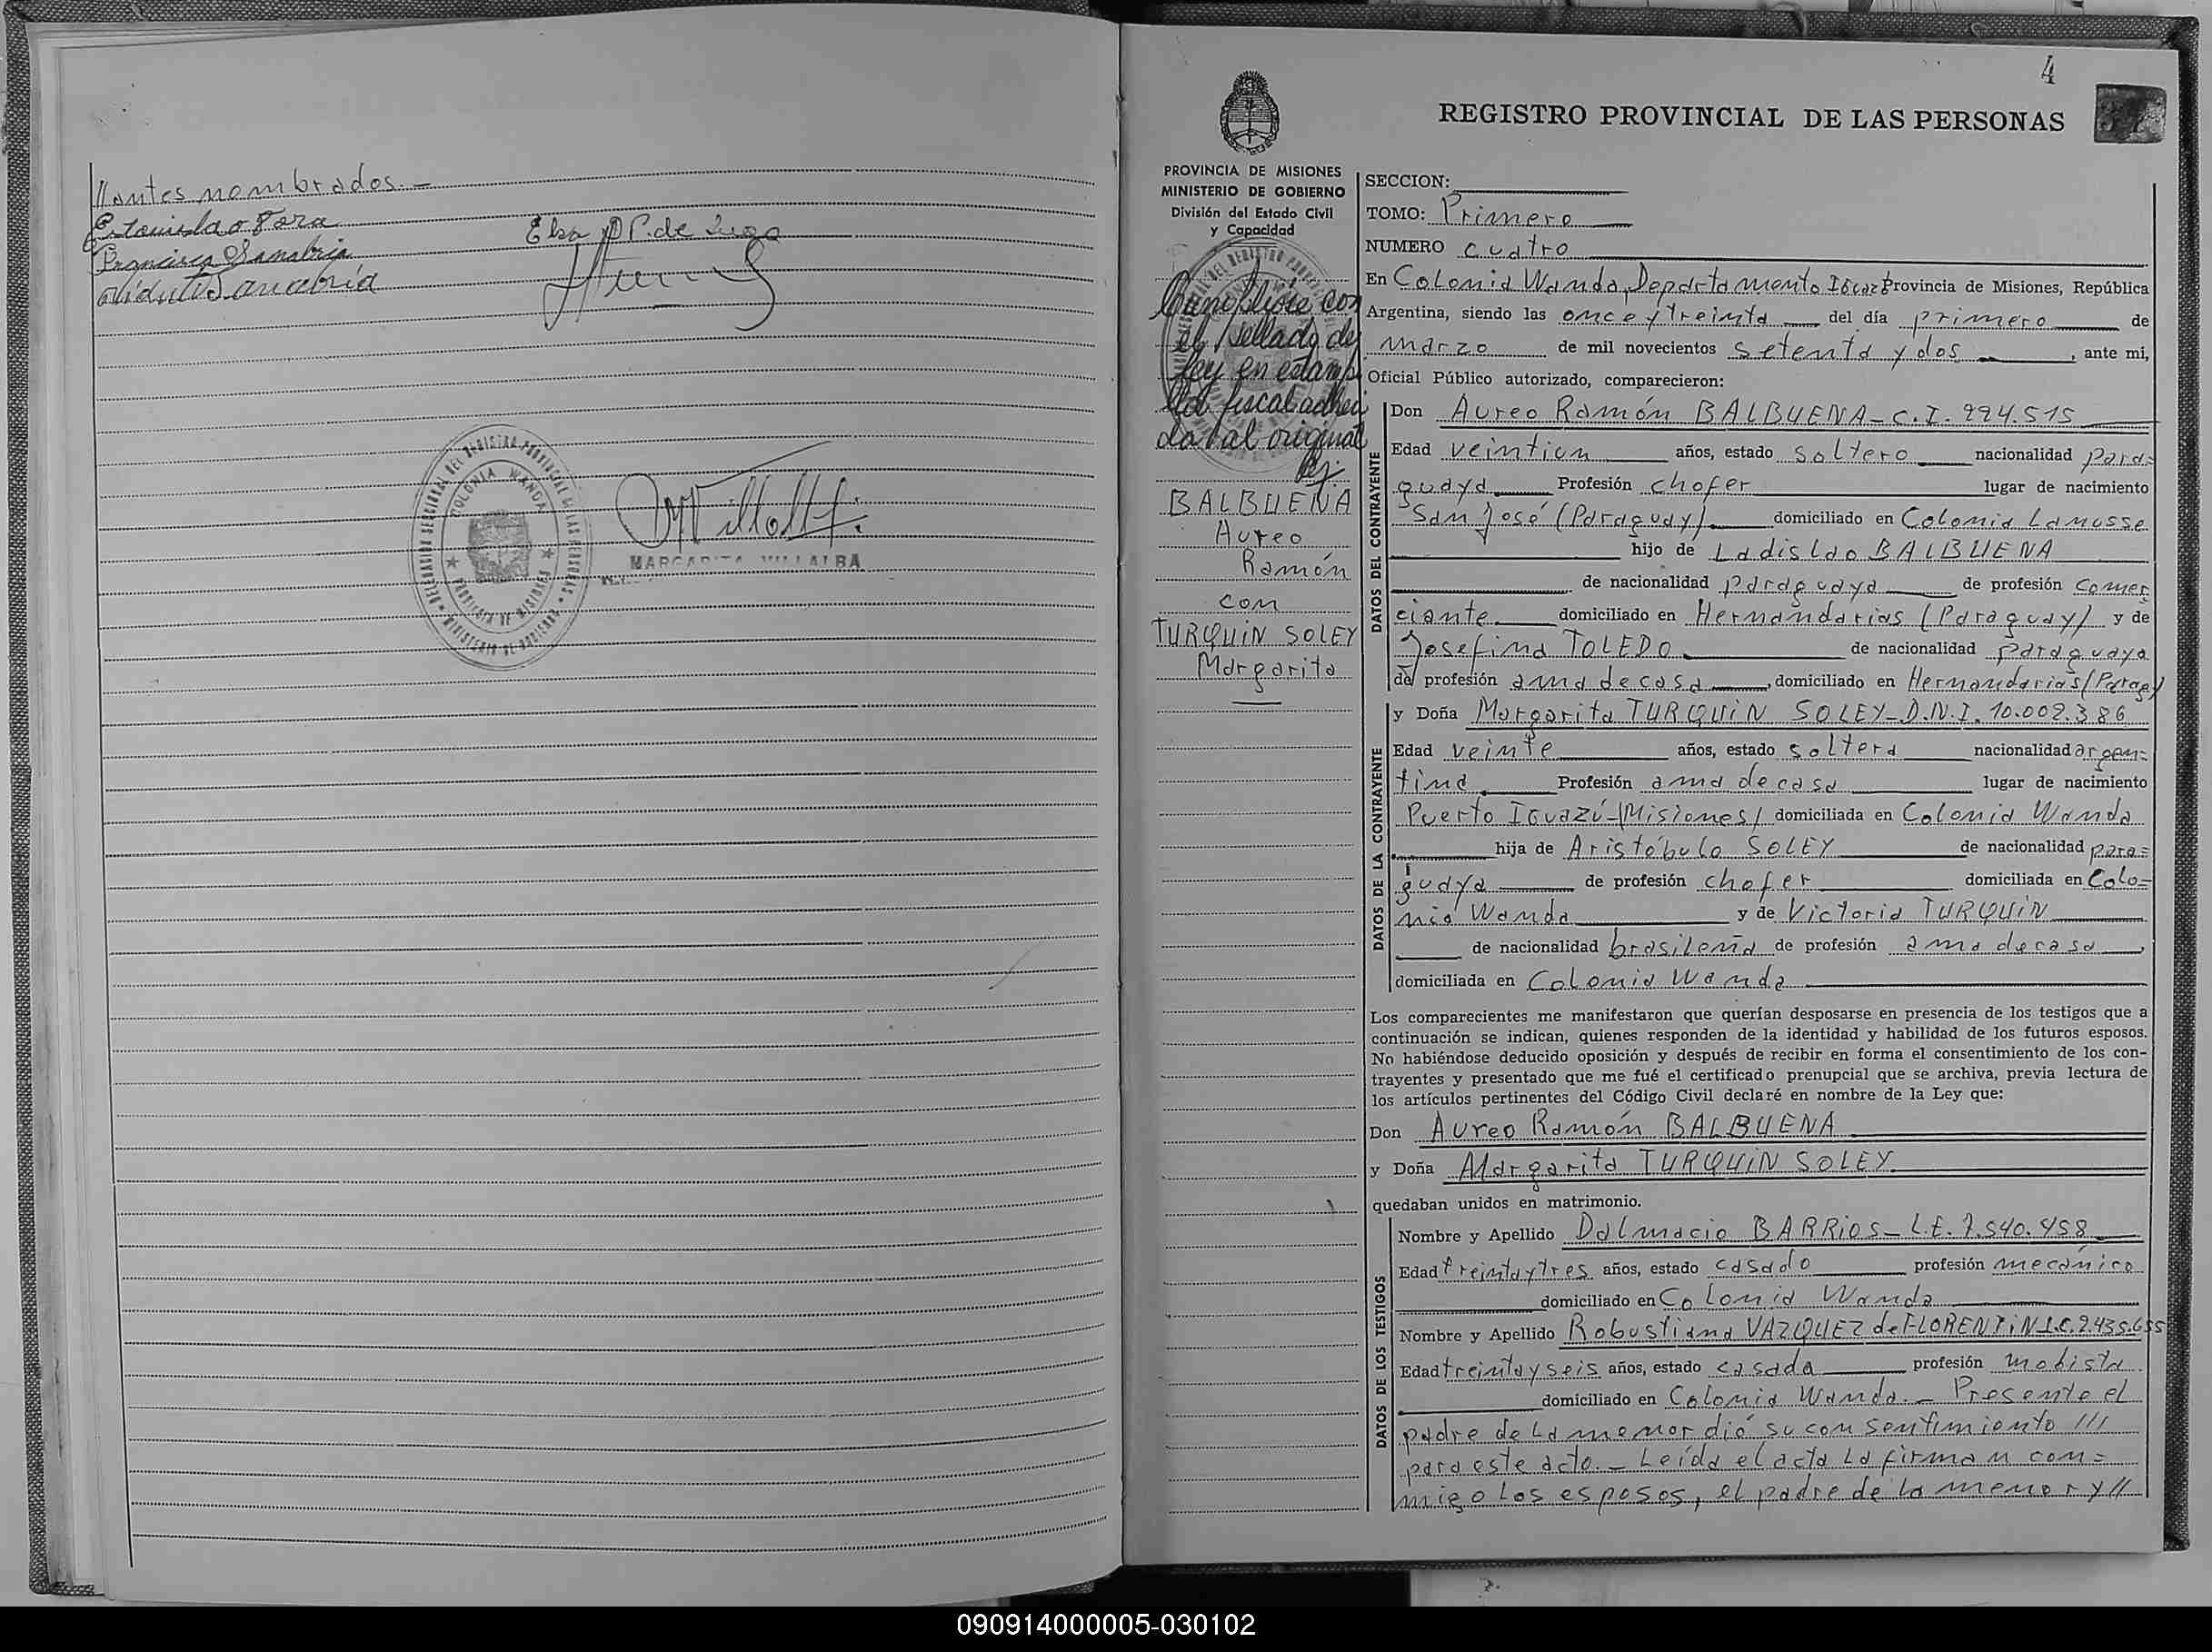 //antes nombrados.—
Estanislao Jara
Francisca Sanabria
Elsa D P. de Lugo
Sanabria
COLONIA WANDA
MARGARITA VILLALBA
4
REGISTRO PROVINCIAL DE LAS PERSONAS
PROVINCIA DE MISIONES
MINISTERIO DE GOBIERNO
División del Estado Civil
y Capacidad
Cumplióse con
el sellado de
ley en estampi
lla fiscal adheri
da al original
BALBUENA
Aureo
Ramón
con
TURQUIN SOLEY
Margarita
SECCION:
TOMO: Primero
NUMERO cuatro
En Colonia Wanda, Departamento Iguazú Provincia de Misiones, República
Argentina, siendo las once y treinta del día primero de
marzo de mil novecientos setenta y dos, ante mi,
Oficial Público autorizado, comparecieron:
DATOS DEL CONTRAYENTE
Don Aureo Ramón BALBUENA - C.I. 224.515
Edad veintiun años, estado soltero nacionalidad para=
guaya Profesión chofer lugar de nacimiento
San José (Paraguay) domiciliado en Colonia Lanusse
hijo de Ladislao BALBUENA
de nacionalidad paraguaya de profesión comer
ciante domiciliado en Hernandarias (Paraguay) y de
Josefina TOLEDO de nacionalidad paraguaya
de profesión ama de casa, domiciliado en Hernandarias (Parag)
DATOS DE LA CONTRAYENTE
y Doña Margarita TURQUIN SOLEY - D.N.I. 10.002.386
Edad veinte años, estado soltera nacionalidad argen=
tina Profesión ama de casa lugar de nacimiento
Puerto Iguazú - (Misiones) domiciliada en Colonia Wanda
hija de Aristóbulo SOLEY de nacionalidad para=
guaya de profesión chofer domiciliada en Colo=
nia Wanda y de Victoria TURQUIN
de nacionalidad brasileña de profesión ama de casa,
domiciliada en Colonia Wanda
Los comparecientes me manifestaron que querían desposarse en presencia de los testigos que a
continuación se indican, quienes responden de la identidad y habilidad de los futuros esposos.
No habiéndose deducido oposición y después de recibir en forma el consentimiento de los con-
trayentes y presentado que me fué el certificado prenupcial que se archiva, previa lectura de
los artículos pertinentes del Código Civil declaré en nombre de la Ley que:
Don Aureo Ramón BALBUENA
y Doña Margarita TURQUIN SOLEY
quedaban unidos en matrimonio.
DATOS DE LOS TESTIGOS
Nombre y Apellido Dalmacio BARRIOS - L.E. 7.540.458
Edad treinta y tres años, estado casado profesión mecánico
domiciliado en Colonia Wanda
Nombre y Apellido Robustiana VAZQUEZ de FLORENTIN L.C. 2.435.655
Edad treinta y seis años, estado casada profesión modista
domiciliado en Colonia Wanda.— Presente el
padre de la menor dió su consentimiento ///
para este acto.— Leída el acta la firman con=
migo los esposos, el padre de la menor y //
090914000005-030102